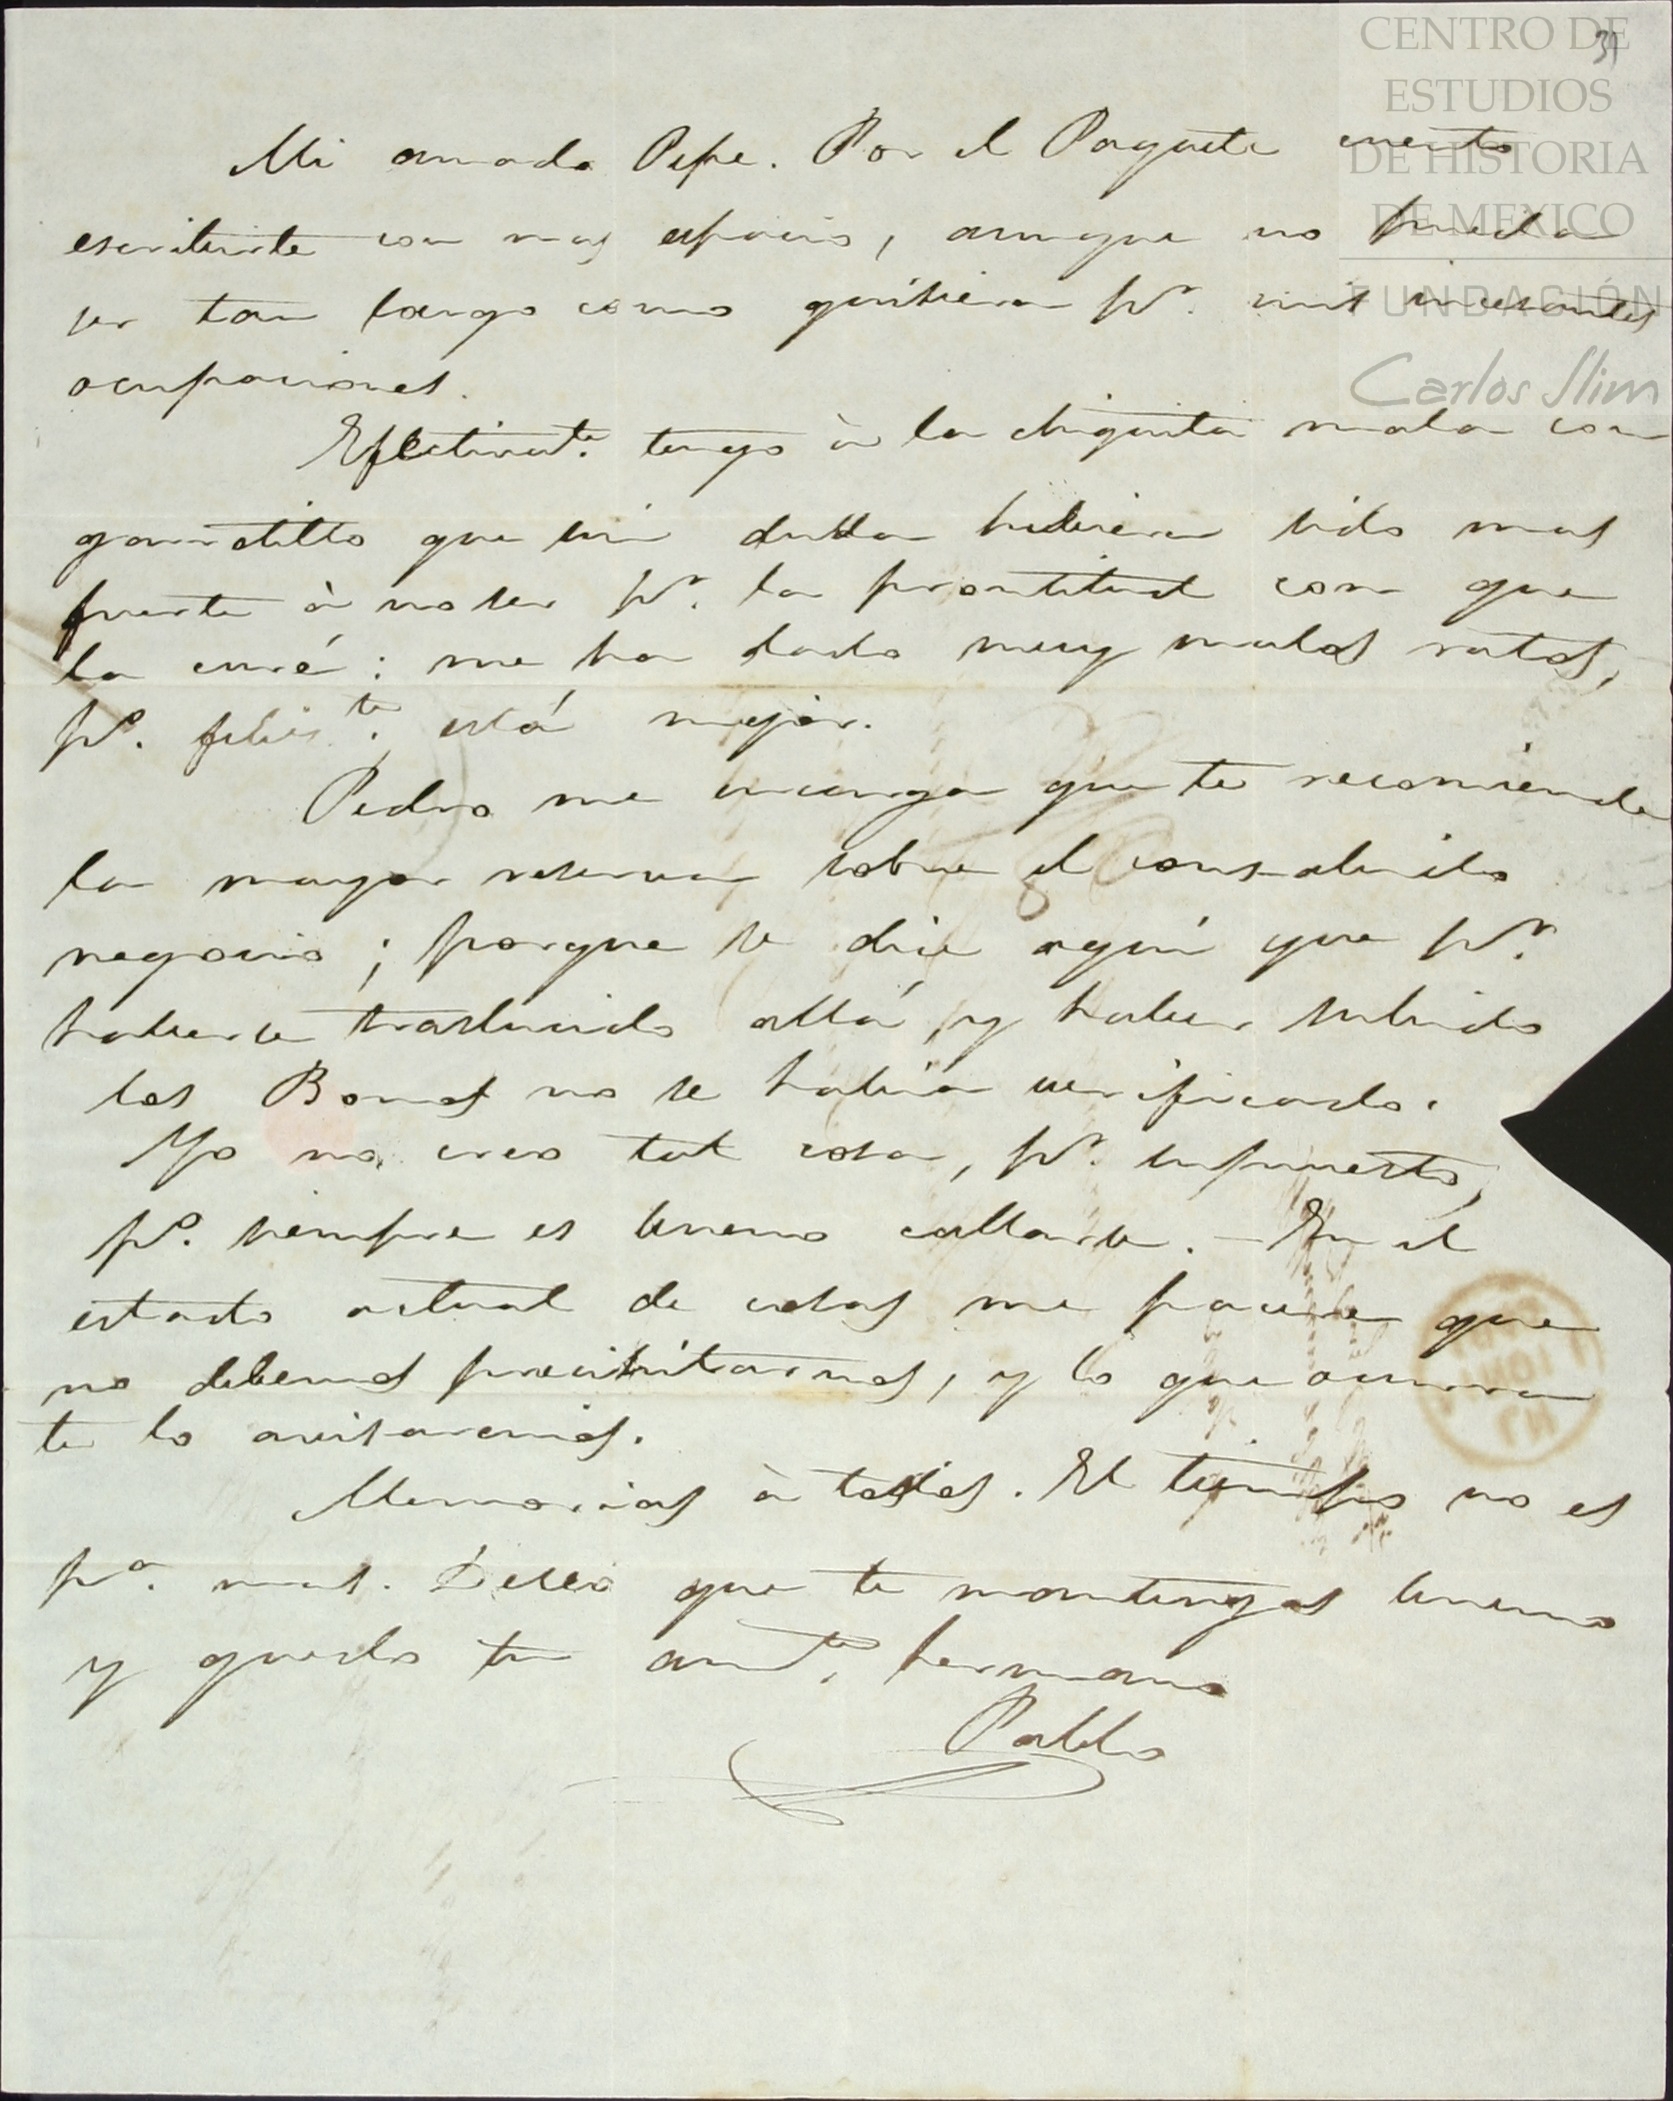 CENTRO DE
ESTUDIOS
DE HISTORIA
DE MEXICO
FUNDACIÓN
Carlos Slim
31
Mi amado Pepe. Por el Paquete cuento
escribirte con mas espacio, aunque no pueda
ser tan largo como quisiera pr. mis incesantes
ocupaciones.
Efectivamte. tengo à la chiquita mala con
garrotillo que sin dudda hubiera sido mas
fuerte à no ser pr. la prontitud con que
la curé: me ha dado muy malos ratos,
po. felizte. está mejor.
Pedro me encarga que te recomiende
la mayor reserva sobre el consabido
negocio; porque se dice aquí que pr.
haberse trasluido allá y haber subido
los Bonos no se habia verificado.
Yo no creo tal cosa, pr. supuesto,
po. siempre es bueno callarse. – En el
estado actual de cosas me parece que
no debemos precipitarnos, y lo que ocurra
te lo avisaremos.
Memorias à todos. El tiempo no es
pa. mas. Deseo que te mantengas bueno
y quedo tu amte. hermano
Pablo